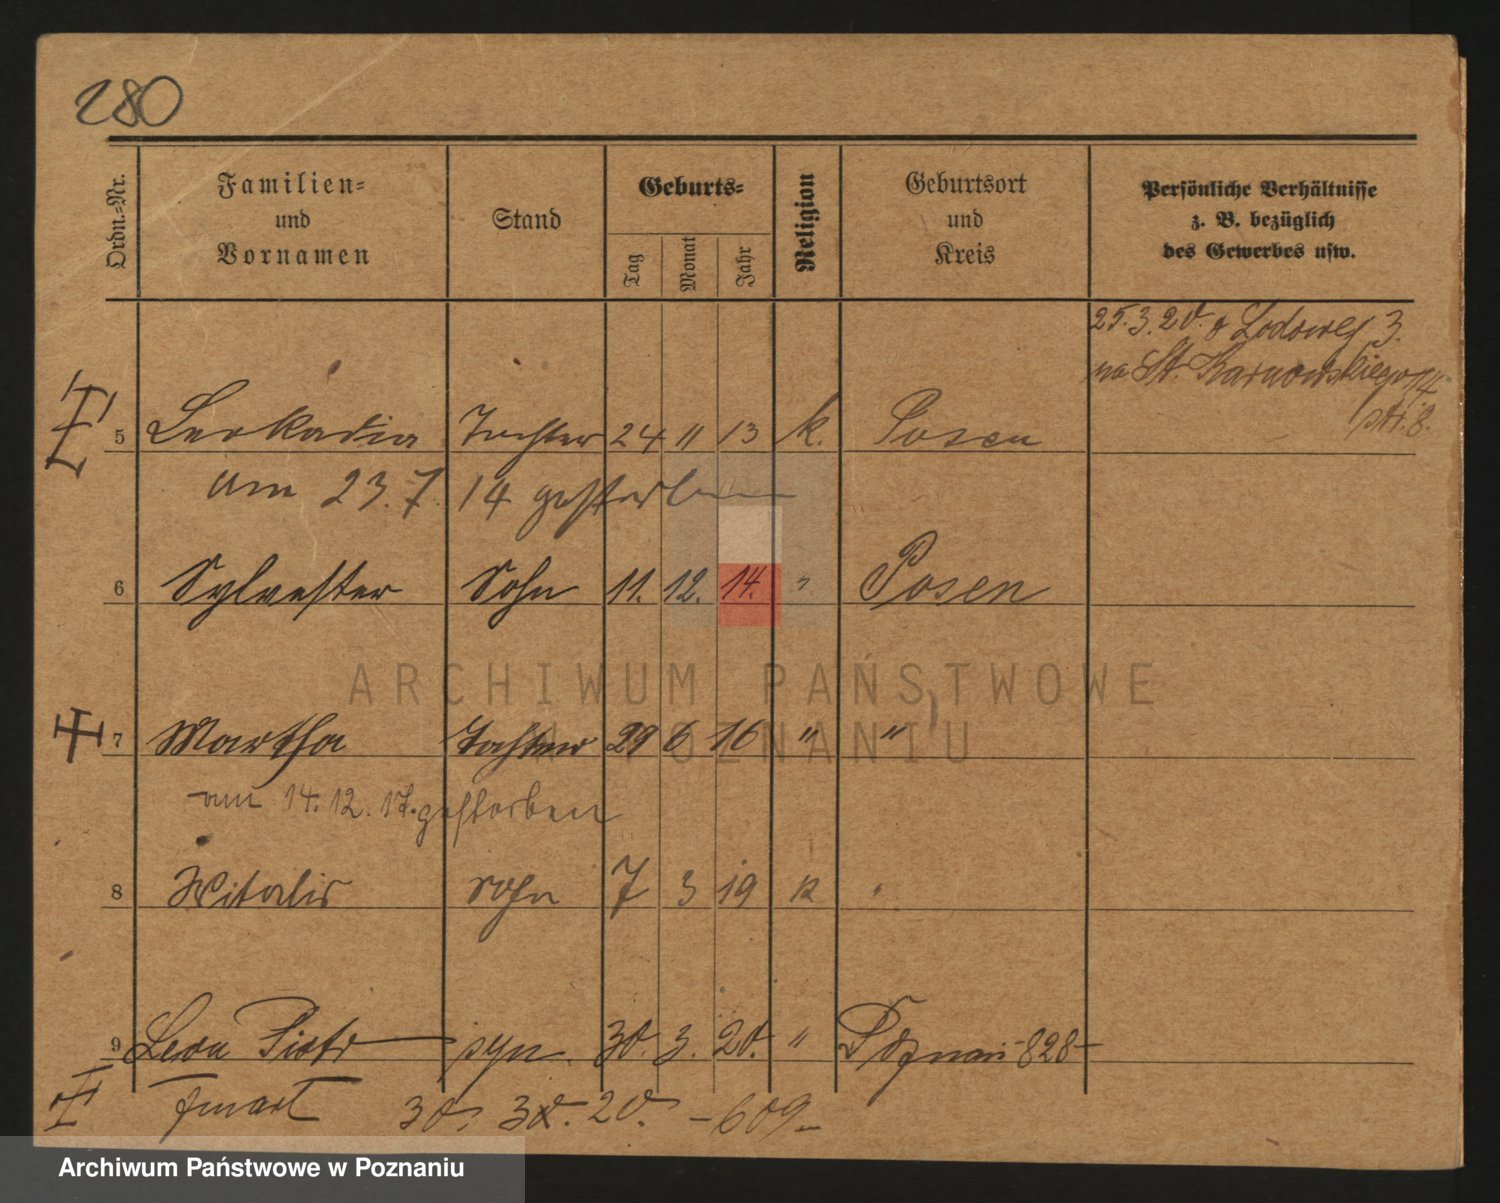 280
Ordn.-Nr.
Familien-
und
Vornamen
Stand
Geburts-
Tag
Monat
Jahr
Religion
Geburtsort
und
Kreis
Persönliche Verhältnisse
z. B. bezüglich
des Gewerbes usw.
25.3.20.
na St. Karnowskiego 14
5 Leokadia Tochter 24 11 13 k. Posen
am 23.7.14 gestorben
6 Sylvester Sohn 11. 12. 14. " Posen
ARCHIWUM PAŃSTWOWE
W POZNANIU
7 Martha Tochter 29 6 16 " "
am 14.12.17. gestorben
8 Witalis Sohn 7 3 19 k "
9 Leon Piotr syn 30. 3. 20. " Poznań -828-
zmarł 30. 3. 20. -609-
Archiwum Państwowe w Poznaniu